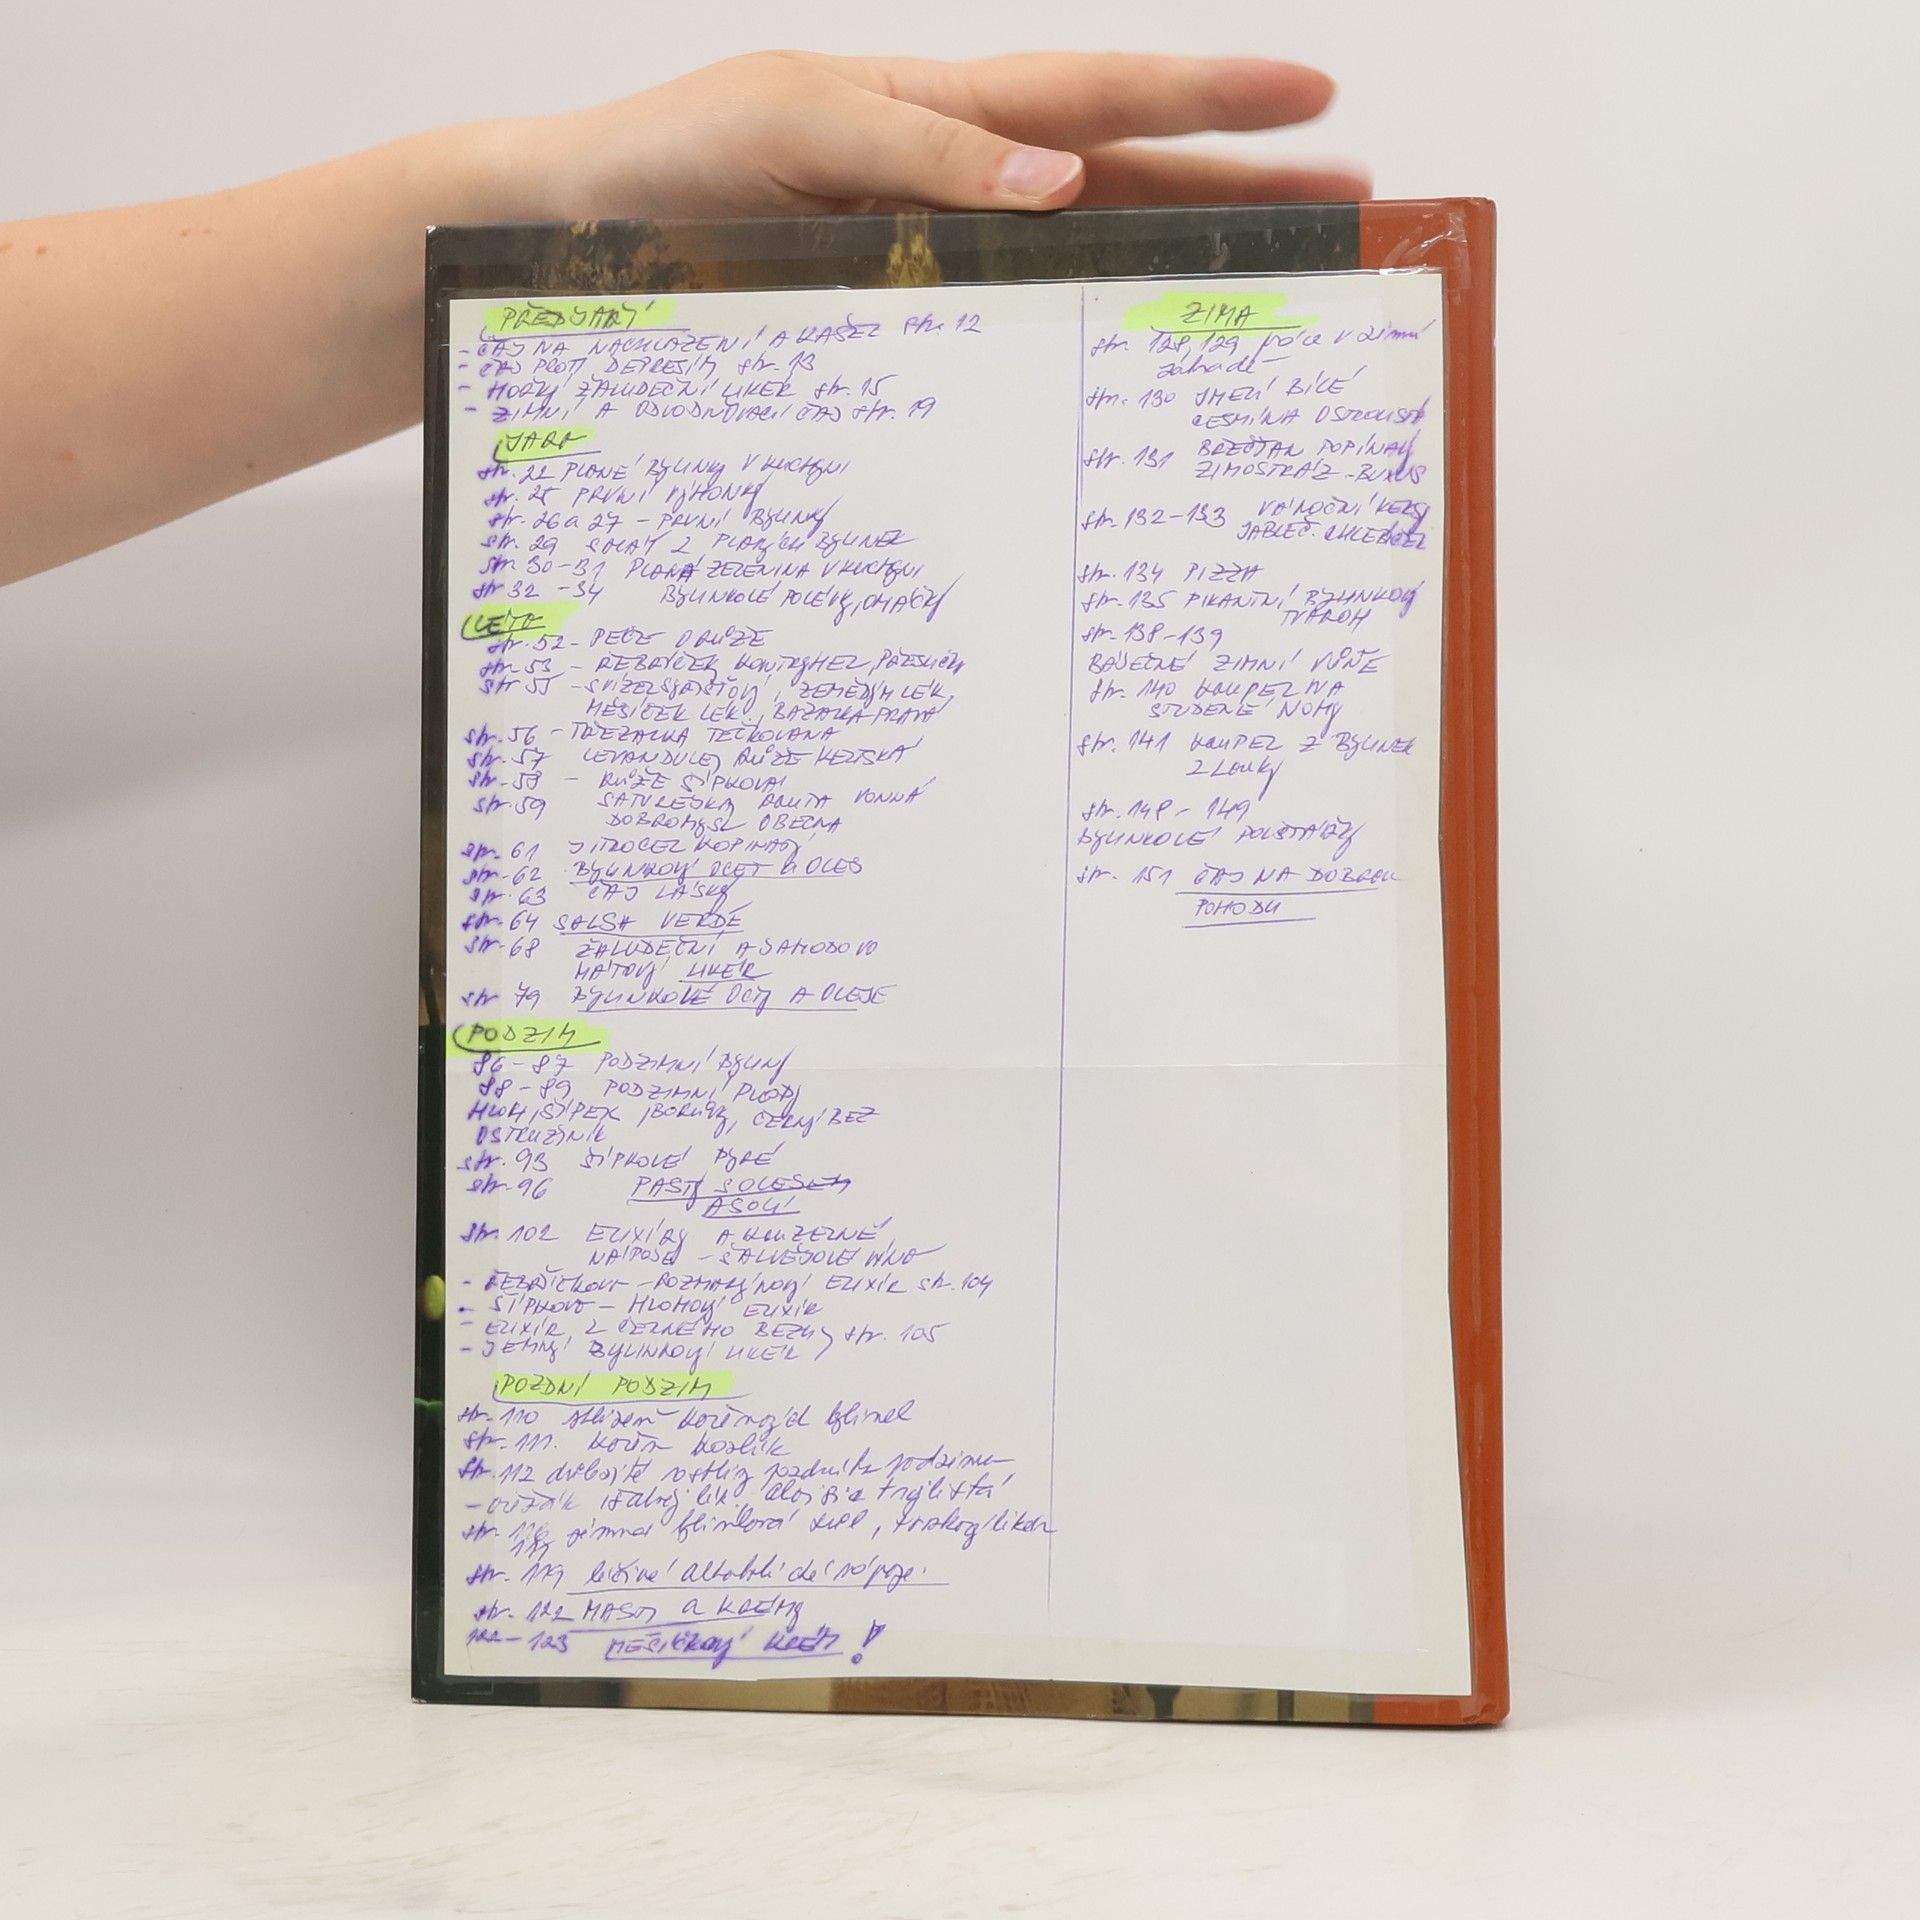 PŘEDJAŘÍ
- ČAJ NA NACHLAZENÍ A KAŠEL str. 12
- ČAJ PROTI DEPRESÍM str. 13
- HOŘKÝ ŽALUDEČNÍ LIKÉR str. 15
- ZIMNÍ A ODVODŇOVACÍ ČAJ str. 19
JARO
str. 22 PLANÉ BYLINKY V KUCHYNI
str. 25 PRVNÍ VÝHONKY
str. 26 a 27 - PRVNÍ BYLINKY
str. 29 SALÁT Z PLANÝCH BYLINEK
str. 30-31 PLANÁ ZELENINA V KUCHYNI
str 32-34 BYLINKOVÉ POLÉVKY, OMÁČKY
LÉTO
str. 52 - PÉČE O RŮŽE
str. 53 - ŘEBŘÍČEK, KONTRYHEL, PŘESLIČKA
str 55 - SVÍZEL SYŘIŠŤOVÝ, ZEMĚDÝM LÉK,
MĚSÍČEK LÉK., BAZALKA PRAVÁ
str. 56 - TŘEZALKA TEČKOVANÁ
str. 57 LEVANDULE, RŮŽE KELTSKÁ
str. 58 - RŮŽE ŠÍPKOVÁ
str. 59 SATUREJKA, ROUTA VONNÁ
DOBROMYSL OBECNÁ
str. 61 JITROCEL KOPINATÝ
str. 62 BYLINKOVÝ OCET A OLEJ
str. 63 ČAJ LÁSKY
str. 64 SALSA VERDE
str. 68 ŽALUDEČNÍ A JAHODOVO
MÁTOVÝ LIKÉR
str 79 BYLINKOVÉ OCTY A OLEJE
PODZIM
86-87 PODZIMNÍ BYLINY
88-89 PODZIMNÍ PLODY
HLOH, ŠÍPEK, BORŮVKY, ČERNÝ BEZ
OSTRUŽINÍK
str. 93 ŠÍPKOVÉ PYRÉ
str. 96 PASTY S OLEJEM
A SOLÍ
str. 102 ELIXÍRY A KOUZELNÉ
NÁPOJE - ŠALVĚJOVÉ VÍNO
- ŘEBŘÍČKOVO - ROZMARÝNOVÝ ELIXÍR str. 104
- ŠÍPKOVO - HLOHOVÝ ELIXÍR
- ELIXÍR Z ČERNÉHO BEZU str. 105
- JEMNÝ BYLINKOVÝ LIKÉR
POZDNÍ PODZIM
str. 110 sklizeň kořenových bylinek
str. 111. kořen kozlík
str. 112 důležité rostliny pozdního podzimu
- ořešák, šalvěj lék. aloisie trojlistá
str. 116 zimní bylinková sůl,
117
str. 119 léčivé alkoholické nápoje.
str. 122 MASTI a KRÉMY
122-123 MĚSÍČKOVÝ KRÉM!
ZIMA
str. 128, 129 práce v zimní
zahradě
str. 130 JMELÍ BÍLÉ
CESMÍNA OSTROLISTÁ
str. 131 BŘEČŤAN POPÍNAVÝ
ZIMOSTRÁZ - BUXUS
str. 132-133 VÁNOČNÍ KEKSY
JABLEČ. CHLEBÍČEK
str. 134 PIZZA
str. 135 PIKANTNÍ BYLINKOVÝ
TVAROH
str. 138-139
BÁJEČNÉ ZIMNÍ VŮNĚ
str. 140 KOUPEL NA
STUDENÉ NOHY
str. 141 KOUPEL Z BYLINEK
Z LOUKY
str. 148 - 149
BYLINKOVÉ POLŠTÁŘKY
str. 151 ČAJ NA DOBROU
POHODU